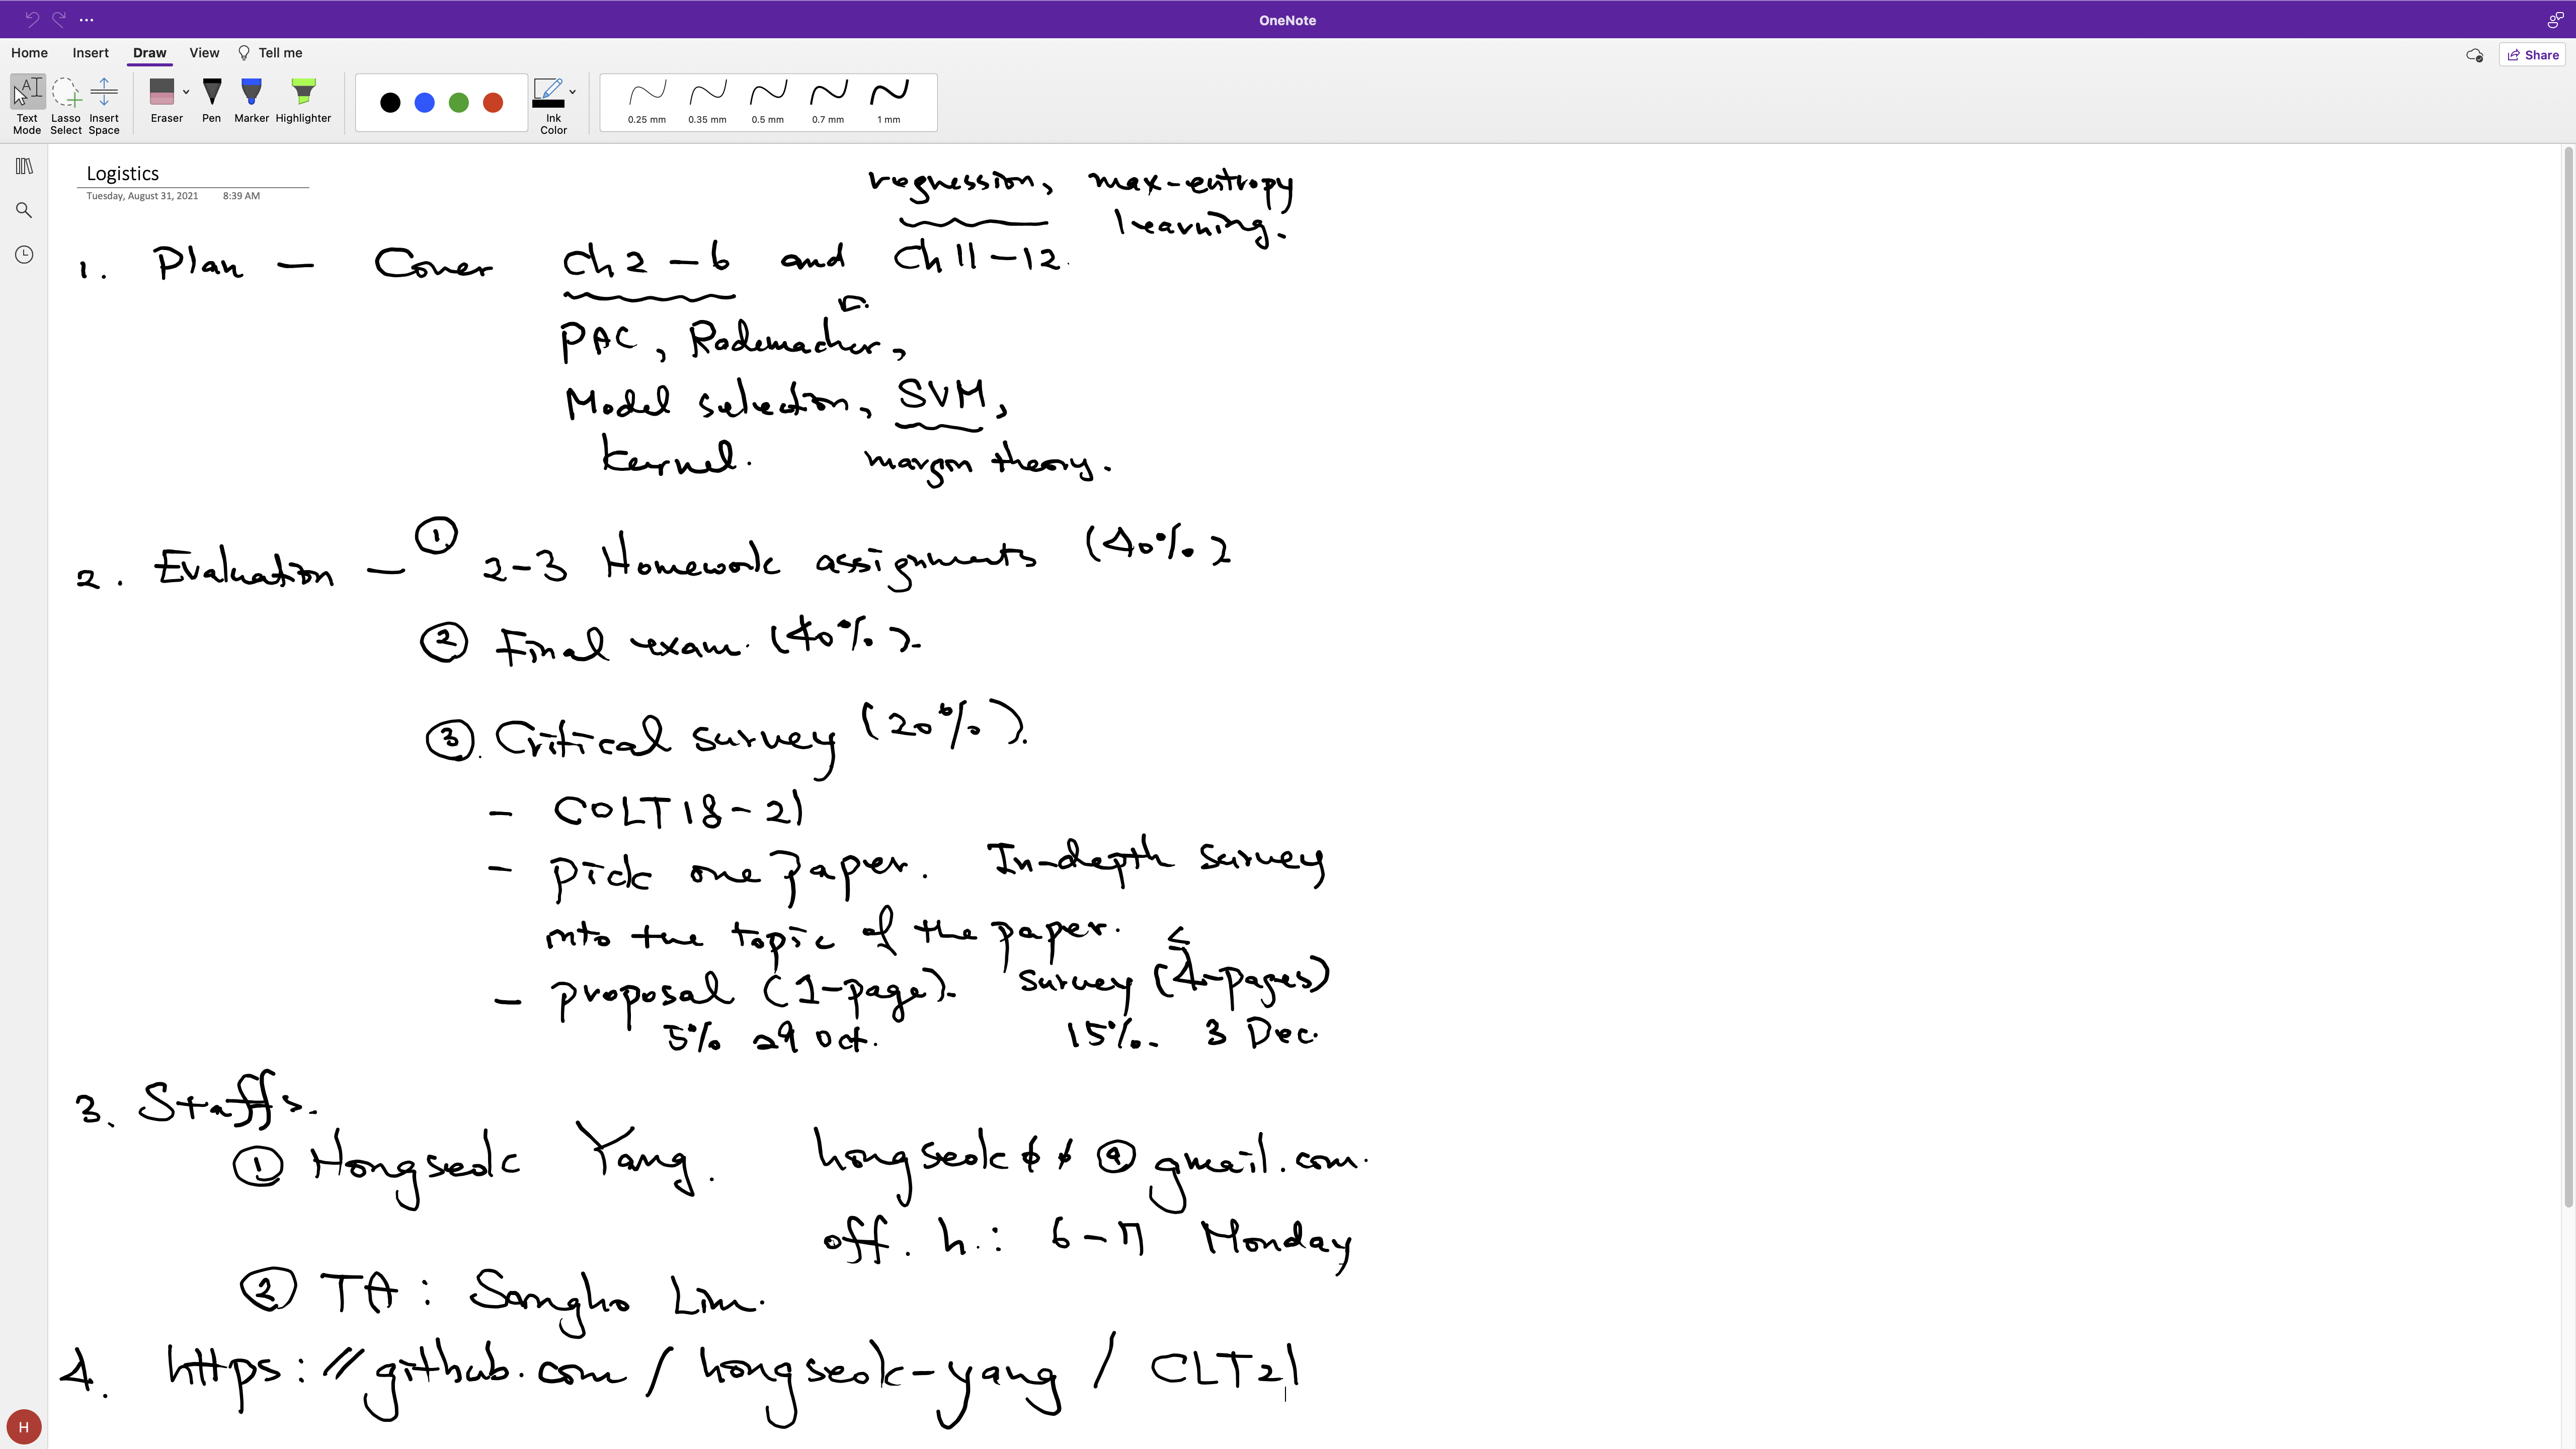 OneNote
Home Insert Draw View Tell me
Share
Text Mode
Lasso Select
Insert Space
Eraser
Pen
Marker
Highlighter
Ink Color
0.25 mm
0.35 mm
0.5 mm
0.7 mm
1 mm
Logistics
Tuesday, August 31, 2021 8:39 AM
regression, max-entropy
learning.
1. Plan — Cover Ch 2 – 6 and Ch 11 – 12.
PAC, Rademacher,
Model selection, SVM,
kernel. margin theory.
2. Evaluation — ① 2-3 Homework assignments (40%)
② Final exam. (40%).
③. Critical survey (20%).
- COLT 18 - 21
- pick one paper. In-depth survey
into the topic of the paper.
- proposal (1-page). survey (≤ 4-pages)
5% 29 Oct. 15%. 3 Dec.
3. Staffs.
① Hongseok Yang. hongseok00@gmail.com.
off. h.: 6-7 Monday
② TA: Sangho Lim.
4. https://github.com/hongseok-yang/CLT21
H